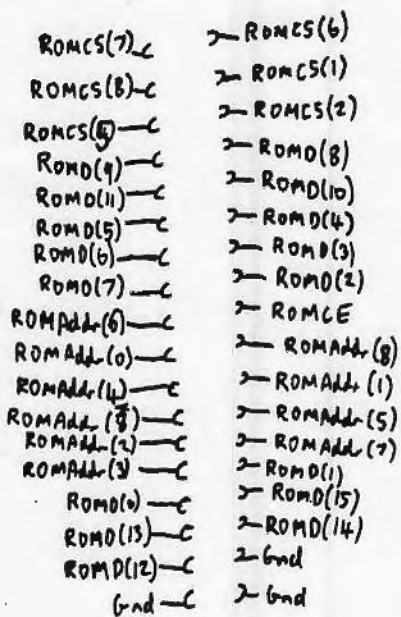 ROMCS(7)
ROMCS(8)
ROMD(9)
ROMD(11)
ROMD(5)
ROMD(6)
ROMD(7)
ROMAddr(6)
ROMAddr(0)
ROMAddr(4)
ROMAddr(2)
ROMAddr(3)
ROMD(0)
ROMD(13)
ROMD(12)
Gnd
ROMCS(6)
ROMCS(1)
ROMCS(2)
ROMD(8)
ROMD(10)
ROMD(4)
ROMD(3)
ROMD(2)
ROMCE
ROMAddr(8)
ROMAddr(1)
ROMAddr(5)
ROMAddr(7)
ROMD(1)
ROMD(15)
ROMD(14)
Gnd
Gnd